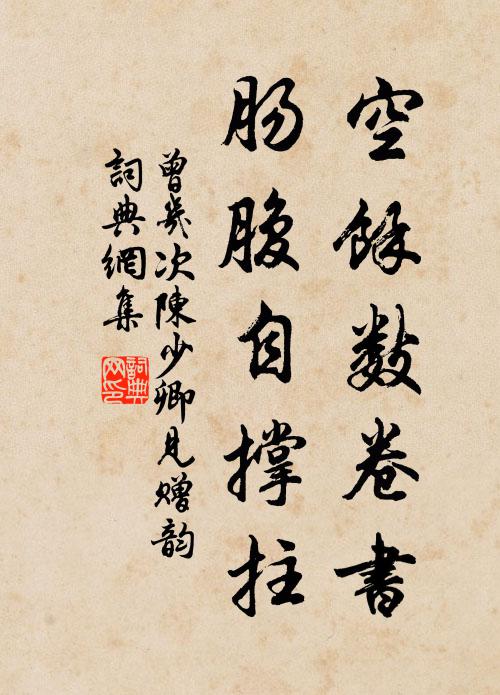 空餘數卷書
肠腹自撑拄
曾幾次陳少卿見贈韵
詞典網集
詞典网印